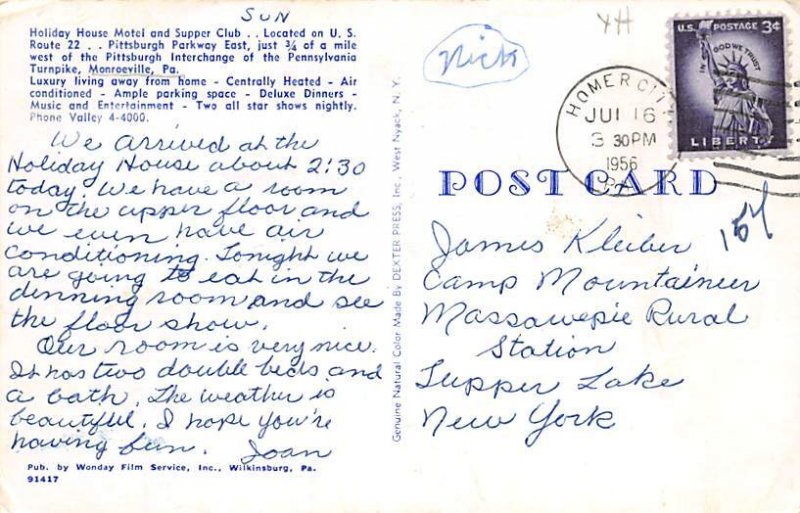 SUN
Holiday House Motel and Supper Club . . Located on U. S.
Route 22 . . Pittsburgh Parkway East, just ¾ of a mile
west of the Pittsburgh Interchange of the Pennsylvania
Turnpike, Monroeville, Pa.
Luxury living away from home - Centrally Heated - Air
conditioned - Ample parking space - Deluxe Dinners -
Music and Entertainment - Two all star shows nightly.
Phone Valley 4-4000.
We arrived at the
Holiday House about 2:30
today. We have a room
on the upper floor and
we even have air
conditioning. Tonight we
are going to eat in the
dinning room and see
the floor show.
Our room is very nice.
It has two double beds and
a bath. The weather is
beautiful. I hope you're
having fun. Joan
Pub. by Wonday Film Service, Inc., Wilkinsburg, Pa.
91417
Genuine Natural Color Made By DEXTER PRESS, Inc., West Nyack, N. Y.
Nick
HOMER CITY
JUL 16
3 30PM
1956
PA
U.S. POSTAGE 3¢
IN GOD WE TRUST
LIBERTY
POST CARD
James Kleiber
Camp Mountaineer
Massawepie Rural
Station
Tupper Lake
New York